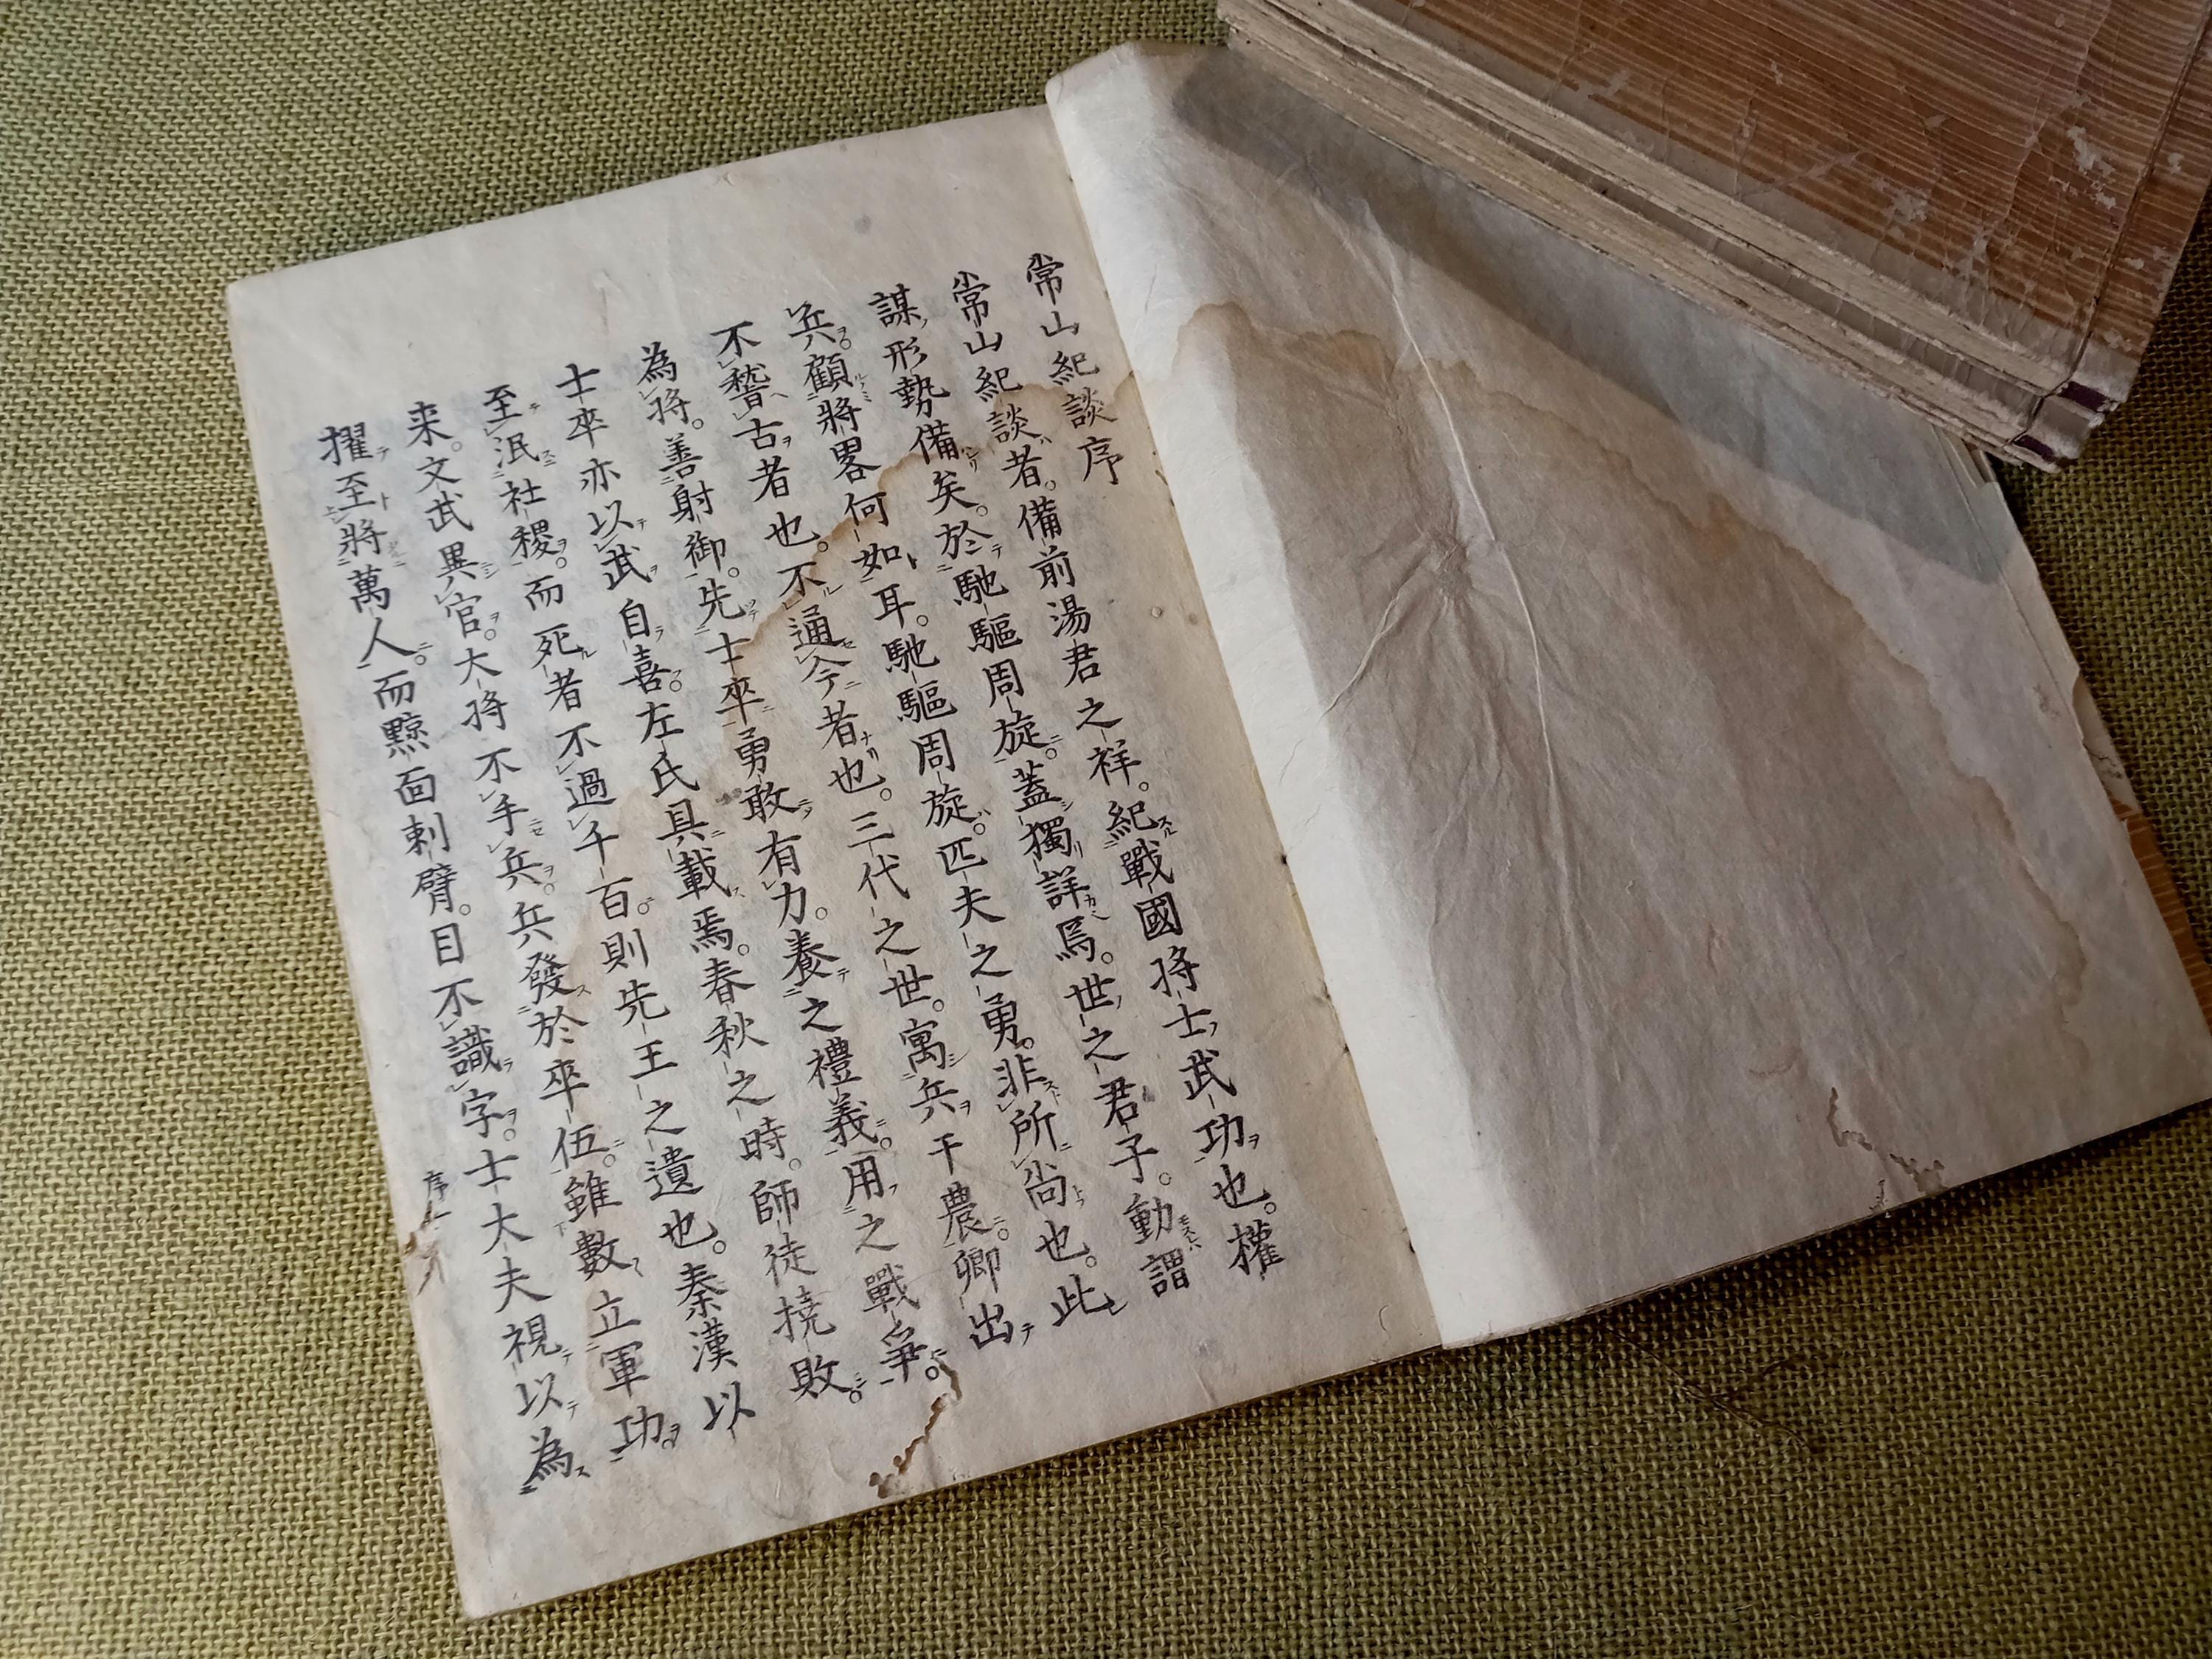 常山紀談序
常山紀談者。備前湯君之祥。紀戰國将士武功也。權
謀形勢備矣。於馳驅周旋。蓋獨詳焉。世之君子。動謂
兵。顧將畧何如耳。馳驅周旋。匹夫之勇。非所尚也。此
不稽古者也。不通今者也。三代之世。寓兵于農。卿出
為将。善射御。先士卒勇敢有力。養之禮義。用之戰爭。
士卒亦以武自喜。左氏具載焉。春秋之時。師徒撓敗。
至泯社稷。而死者不過千百。則先王之遺也。秦漢以
来。文武異官。大将不手兵。兵發於卒伍。雖數立軍功。
擢至將萬人。而黥面刺臂。目不識字。士大夫視以為
序一